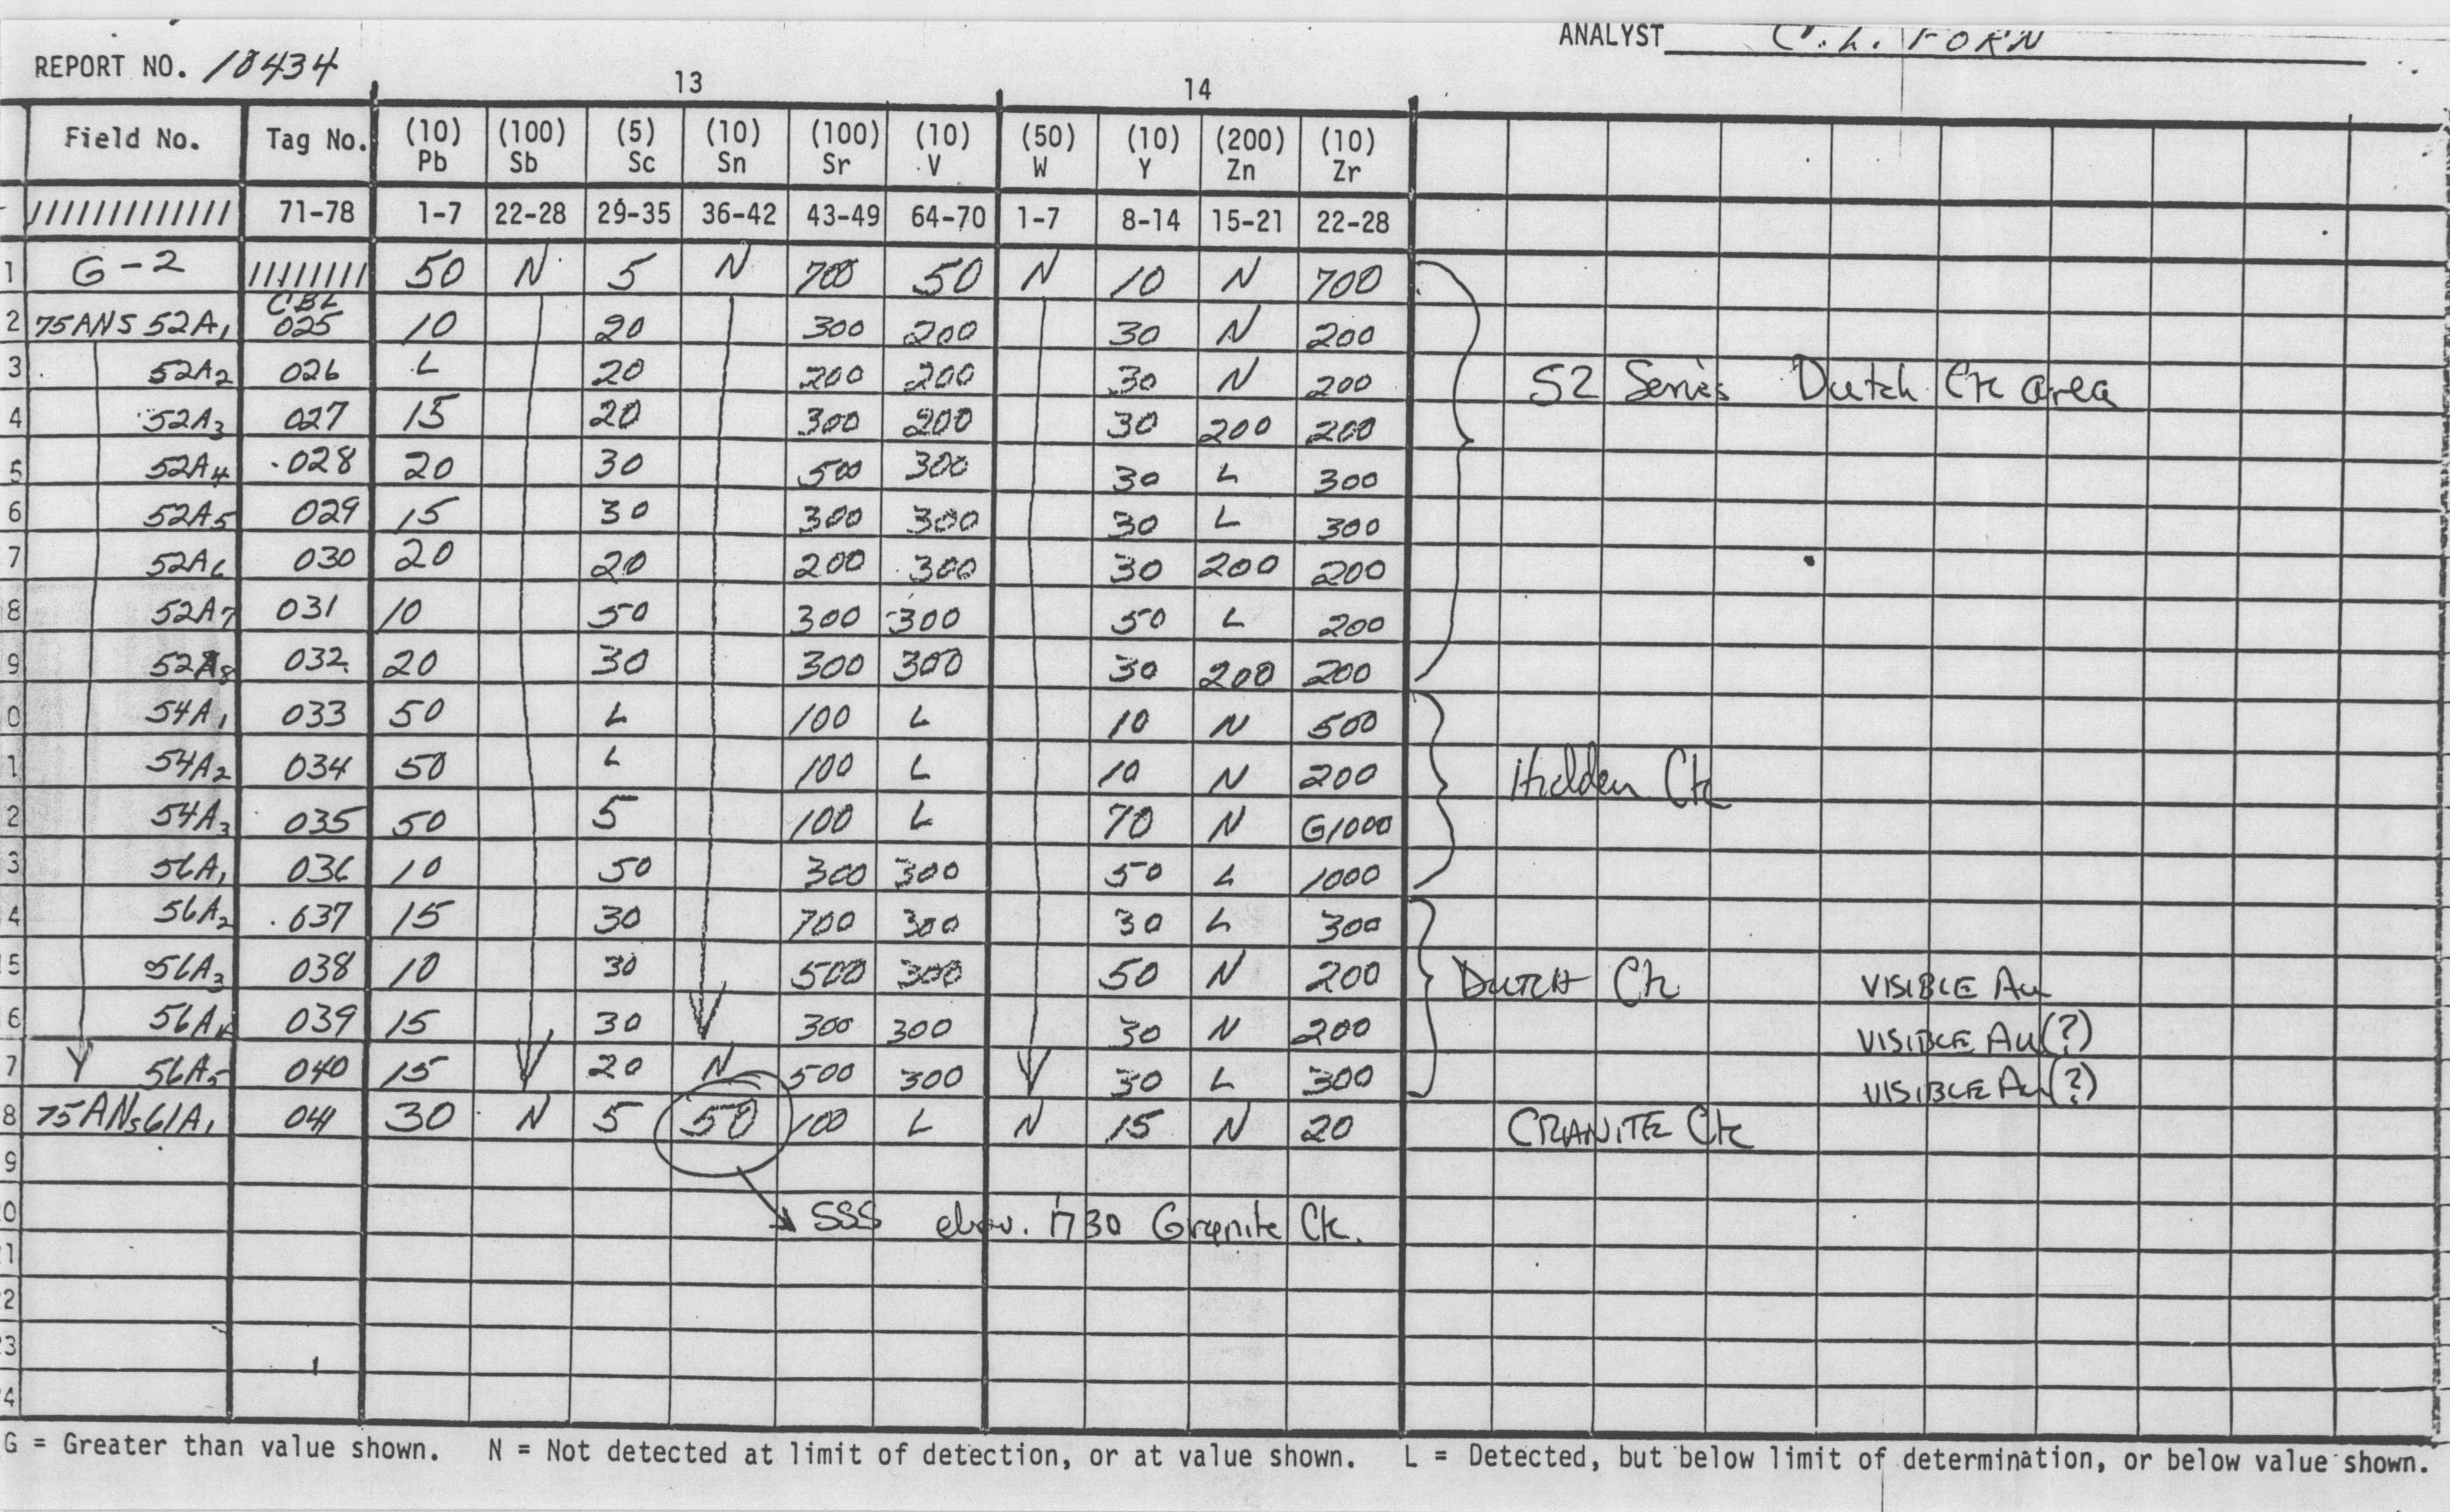 ANALYST C. L. FORN
REPORT NO. 18434
13 14
Field No. Tag No. (10) Pb (100) Sb (5) Sc (10) Sn (100) Sr (10) V (50) W (10) Y (200) Zn (10) Zr
///////////// 71-78 1-7 22-28 29-35 36-42 43-49 64-70 1-7 8-14 15-21 22-28
1 G-2 //////// 50 N 5 N 700 50 N 10 N 700
2 75ANS 52A1 CBL 025 10 20 300 200 30 N 200
3 52A2 026 L 20 200 200 30 N 200 52 Series Dutch Ck area
4 52A3 027 15 20 300 200 30 200 200
5 52A4 028 20 30 500 300 30 L 300
6 52A5 029 15 30 300 300 30 L 300
7 52A6 030 20 20 200 300 30 200 200
8 52A7 031 10 50 300 300 50 L 200
9 52A8 032 20 30 300 300 30 200 200
0 54A1 033 50 L 100 L 10 N 500
1 54A2 034 50 L 100 L 10 N 200 Hidden Ck
2 54A3 035 50 5 100 L 70 N G1000
3 56A1 036 10 50 300 300 50 L 1000
4 56A2 037 15 30 700 300 30 L 300
5 56A3 038 10 30 500 300 50 N 200 DUTCH Ck VISIBLE Au
6 56A4 039 15 30 300 300 30 N 200 VISIBLE Au(?)
7 56A5 040 15 20 N 500 300 30 L 300 VISIBLE Au(?)
8 75ANS61A1 041 30 N 5 50 100 L N 15 N 20 GRANITE Ck
9
0 SSS elev. 1730 Granite Ck.
1
2
3
4
G = Greater than value shown. N = Not detected at limit of detection, or at value shown. L = Detected, but below limit of determination, or below value shown.